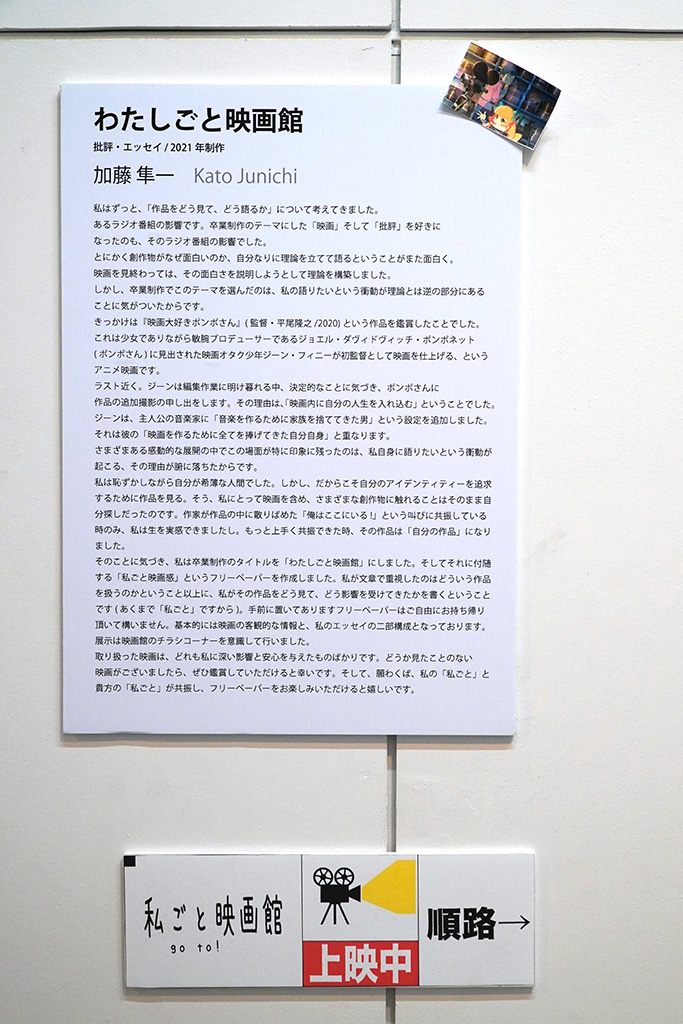 わたしごと映画館
批評・エッセイ / 2021 年制作
加藤 隼一 Kato Junichi
私はずっと、「作品をどう見て、どう語るか」について考えてきました。
あるラジオ番組の影響です。卒業制作のテーマにした「映画」そして「批評」を好きに
なったのも、そのラジオ番組の影響でした。
とにかく創作物がなぜ面白いのか、自分なりに理論を立てて語るということがまた面白く。
映画を見終わっては、その面白さを説明しようとして理論を構築しました。
しかし、卒業制作でこのテーマを選んだのは、私の語りたいという衝動が理論とは逆の部分にある
ことに気がついたからです。
きっかけは『映画大好きポンポさん』( 監督・平尾隆之 /2020) という作品を鑑賞したことでした。
これは少女でありながら敏腕プロデューサーであるジョエル・ダヴィドヴィッチ・ポンポネット
( ポンポさん ) に見出された映画オタク少年ジーン・フィニーが初監督として映画を仕上げる、という
アニメ映画です。
ラスト近く。ジーンは編集作業に明け暮れる中、決定的なことに気づき、ポンポさんに
作品の追加撮影の申し出をします。その理由は、「映画内に自分の人生を入れ込む」ということでした。
ジーンは、主人公の音楽家に「音楽を作るために家族を捨ててきた男」という設定を追加しました。
それは彼の「映画を作るために全てを捧げてきた自分自身」と重なります。
さまざまある感動的な展開の中でこの場面が特に印象に残ったのは、私自身に語りたいという衝動が
起こる、その理由が腑に落ちたからです。
私は恥ずかしながら自分が希薄な人間でした。しかし、だからこそ自分のアイデンティティーを追求
するために作品を見る。そう、私にとって映画を含め、さまざまな創作物に触れることはそのまま自
分探しだったのです。作家が作品の中に散りばめた「俺はここにいる！」という叫びに共振している
時のみ、私は生を実感できましたし。もっと上手く共振できた時、その作品は「自分の作品」になり
ました。
そのことに気づき、私は卒業制作のタイトルを「わたしごと映画館」にしました。そしてそれに付随
する「私ごと映画感」というフリーペーパーを作成しました。私が文章で重視したのはどういう作品
を扱うのかということ以上に、私がその作品をどう見て、どう影響を受けてきたかを書くということ
です ( あくまで「私ごと」ですから )。手前に置いてありますフリーペーパーはご自由にお持ち帰り
頂いて構いません。基本的には映画の客観的な情報と、私のエッセイの二部構成となっております。
展示は映画館のチラシコーナーを意識して行いました。
取り扱った映画は、どれも私に深い影響と安心を与えたものばかりです。どうか見たことのない
映画がございましたら、ぜひ鑑賞していただけると幸いです。そして、願わくば、私の「私ごと」と
貴方の「私ごと」が共振し、フリーペーパーをお楽しみいただけると嬉しいです。
私ごと映画館
go to!
上映中
順路→